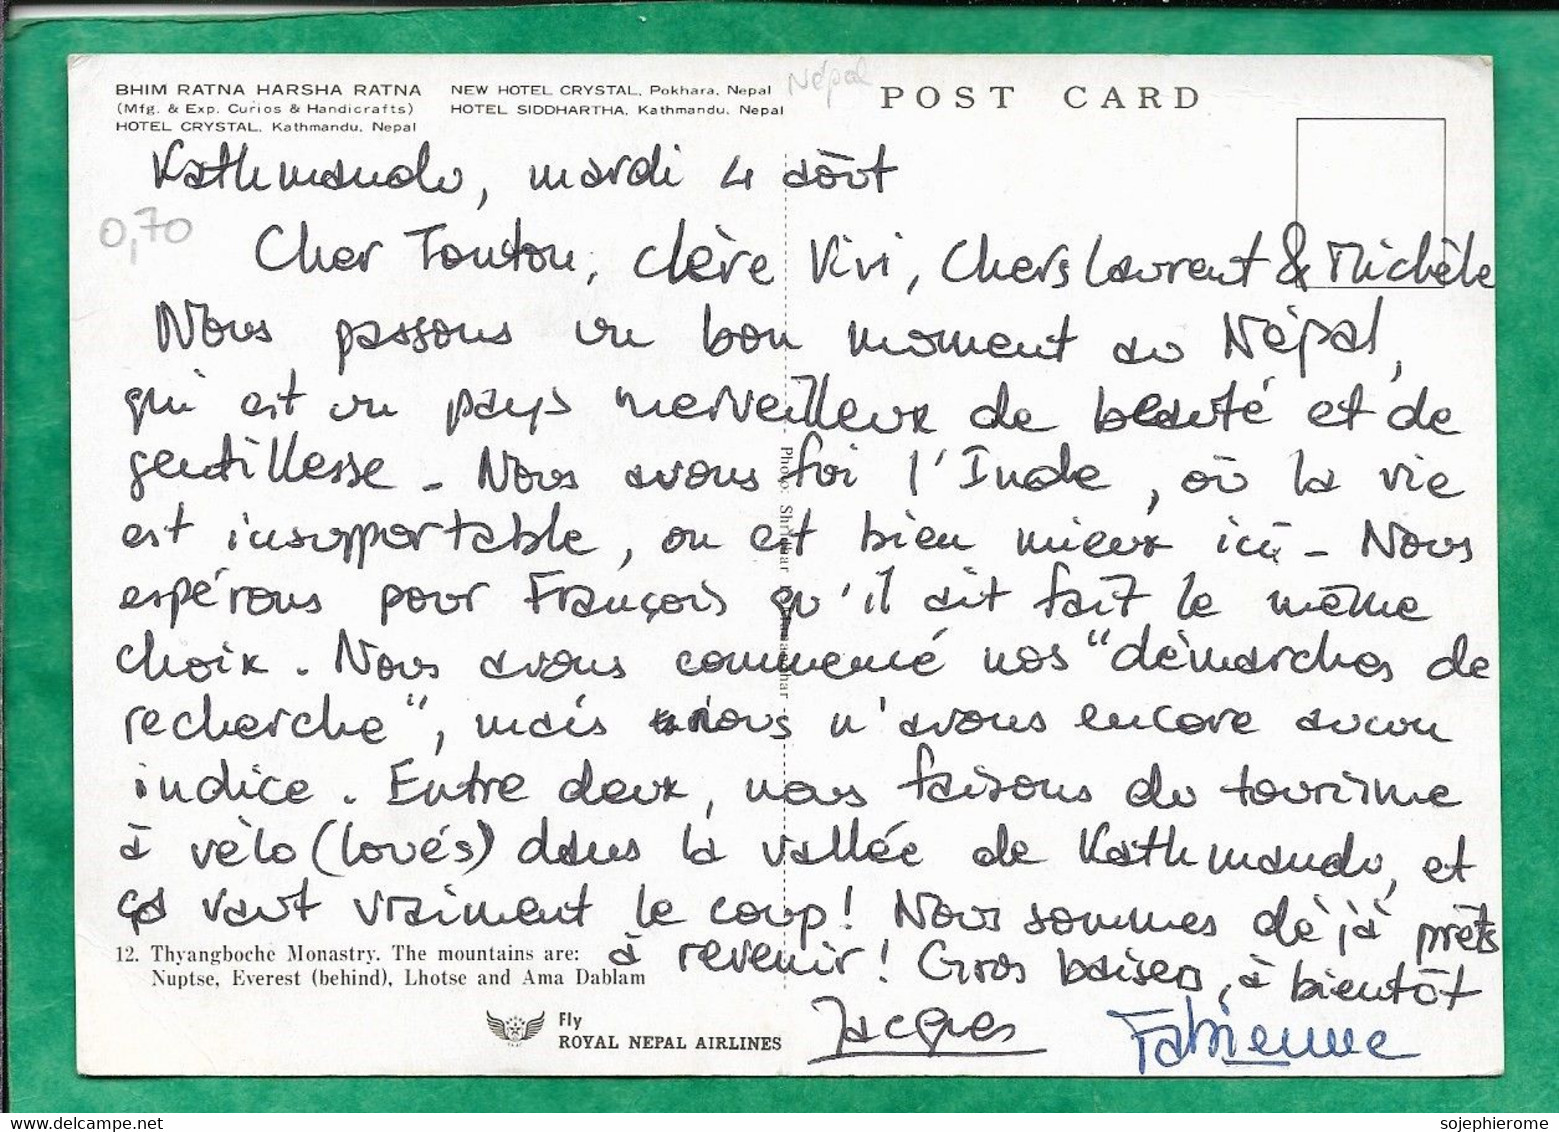 BHIM RATNA HARSHA RATNA
(Mfg. & Exp. Curios & Handicrafts)
HOTEL CRYSTAL, Kathmandu, Nepal
NEW HOTEL CRYSTAL, Pokhara, Nepal
HOTEL SIDDHARTHA, Kathmandu, Nepal
Népal
POST CARD
Kathmandu, mardi 4 août
0,70
Cher Tonton, chère Vivi, Chers Laurent & Michèle
Nous passons un bon moment au Népal,
qui est un pays merveilleux de beauté et de
gentillesse - Nous avons foi l'Inde, où la vie
est insupportable, on est bien mieux ici - Nous
espérons pour François qu'il ait fait le même
choix. Nous avons commencé nos "démarches de
recherche", mais nous n'avons encore aucun
indice. Entre deux, nous faisons du tourisme
à vélo (loués) dans la vallée de Kathmandu, et
ça vaut vraiment le coup! Nous sommes déjà prêts
à revenir! Gros baisers, à bientôt
Jacques Fabienne
Photo: Shridhar
12. Thyangboche Monastry. The mountains are:
Nuptse, Everest (behind), Lhotse and Ama Dablam
Fly
ROYAL NEPAL AIRLINES
sojephierome